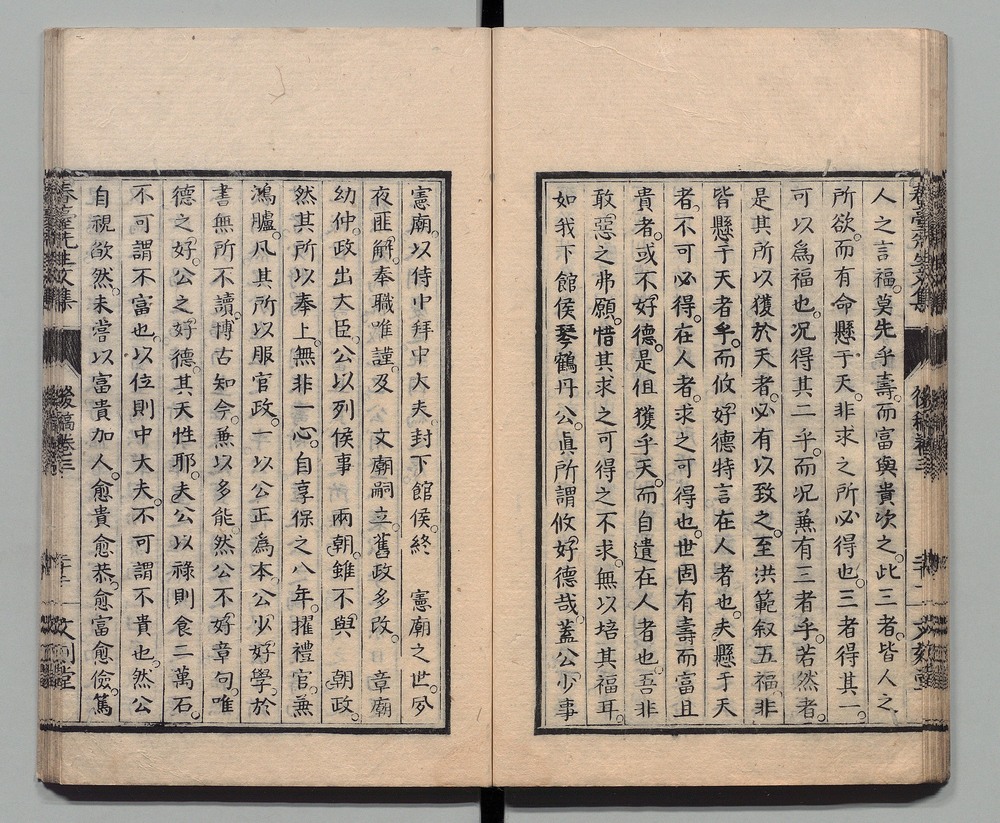 人之言福。莫先乎壽。而富與貴次之。此三者。皆人之
所欲。而有命懸于天。非求之所必得也。三者得其一。
可以為福也。况得其二乎。而况兼有三者乎。若然者。
是其所以獲於天者。必有以致之。至洪範叙五福。非
皆懸于天者乎。而攸好德特言在人者也。夫懸于天
者。不可必得。在人者。求之可得也。世固有壽而富且
貴者。或不好德。是但獲乎天。而自遺在人者也。吾非
敢惡之弗願。惜其求之可得之不求。無以培其福耳。
如我下館侯琴鶴丹公。眞所謂攸好德哉。蓋公少事
憲廟。以侍中拜中大夫。封下館侯。終 憲廟之世。夙
夜匪解。奉職唯謹。及 文廟嗣立。舊政多改。 章廟
幼仲。政出大臣。公以列侯事 兩朝。雖不與 朝政。
然其所以奉上。無非一心。自享保之八年。擢禮官。兼
鴻臚。凡其所以服官政。一以公正為本。公少好學。於
書無所不讀。博古知今。兼以多能。然公不好章句。唯
德之好。公之好德。其天性耶。夫公以祿則食二萬石。
不可謂不富也。以位則中大夫。不可謂不貴也。然公
自視欿然。未嘗以富貴加人。愈貴愈恭。愈富愈儉。篤
後稿卷三